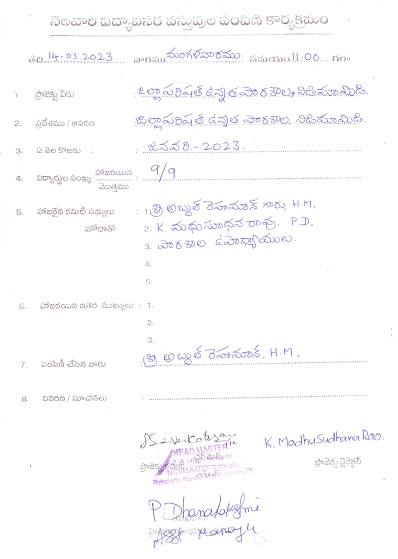 నెలవారి విద్యావసర వస్తువుల పంపిణి కార్యక్రమం
తేది 14.03.2023 వారము మంగళవారము సమయం 11:00 గం
1. ప్రాజెక్టు పేరు : జిల్లాపరిషత్ ఉన్నత పాఠశాల, నిడిమామిడి.
2. ప్రదేశము / ఆవరణ : జిల్లాపరిషత్ ఉన్నత పాఠశాల, నిడిమామిడి.
3. ఏ నెల కొఱకు : జనవరి - 2023.
4. విద్యార్థుల సంఖ్య హాజరయిన / మొత్తము : 9/9
5. హాజరైన కమిటీ సభ్యులు హోదాతో : 1. శ్రీ అబ్దుల్ రెహమాన్ గారు, H.M.
2. K. మధుసూధన రావు. P.D.
3. పాఠశాల ఉపాధ్యాయులు.
4.
5.
6. హాజరయిన ఇతర ముఖ్యులు : 1.
2.
3.
7. పంపిణీ చేసిన వారు : శ్రీ అబ్దుల్ రెహమాన్, H.M.
8. వివరణ / సూచనలు :
K. MadhuSudhana Rao.
HEAD MASTER
ప్రాజెక్టు కమిటీ చైర్మన్ ప్రాజెక్టు డైరెక్టర్
NIDIMAMIDI
P Dhanalakshmi